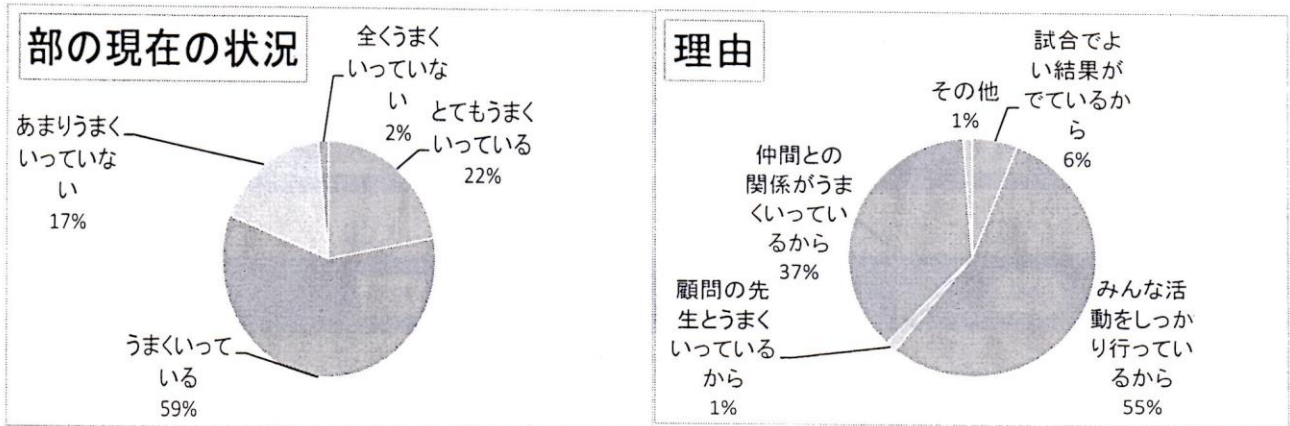 部の現在の状況
全くうまく
いっていな
い
2%
とてもうまく
いっている
22%
あまりうまく
いっていな
い
17%
うまくいって
いる
59%
理由
試合でよ
い結果が
でているか
ら
6%
その他
1%
仲間との
関係がうま
くいってい
るから
37%
顧問の先
生とうまく
いっている
から
1%
みんな活
動をしっか
り行ってい
るから
55%